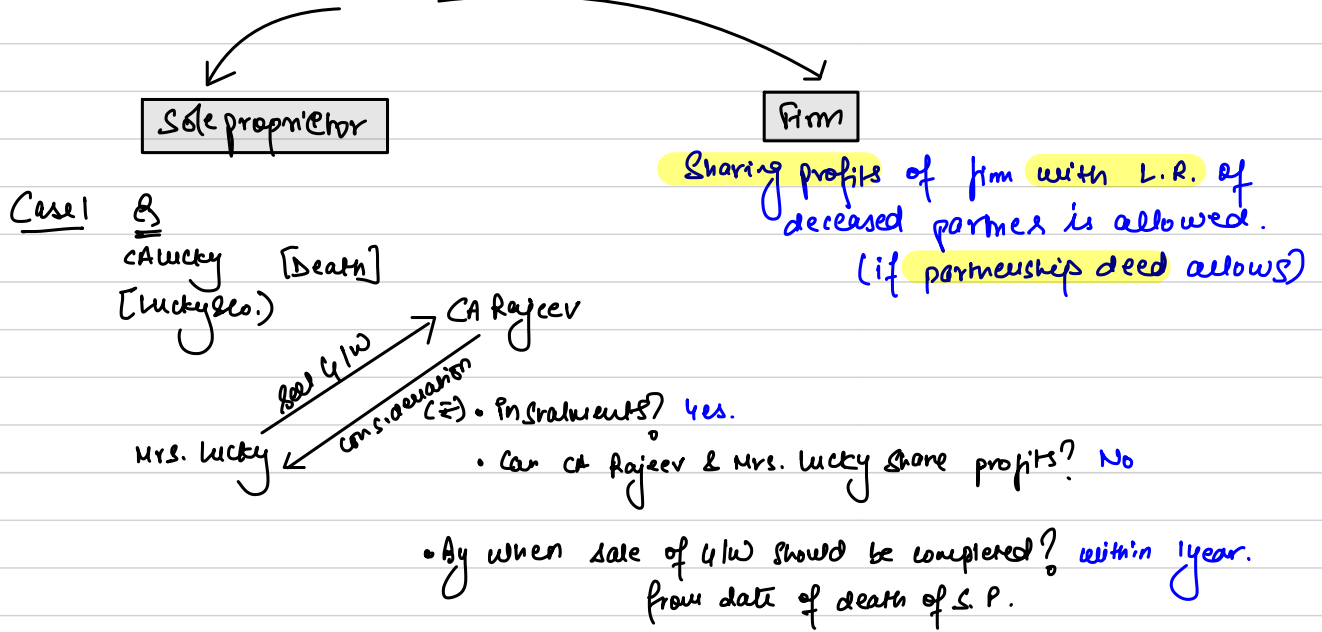 Sole proprietor
Firm
Sharing profits of firm with L.R. of
deceased partner is allowed.
(if partnership deed allows)
Case 1
CA Lucky [Death]
[Lucky & Co.)
CA Rajeev
Sell G/W
consideration
(₹) • instalments? Yes.
Mrs. Lucky
• Can CA Rajeev & Mrs. Lucky share profits? No
• By when sale of G/W should be completed? within 1 year.
from date of death of S.P.